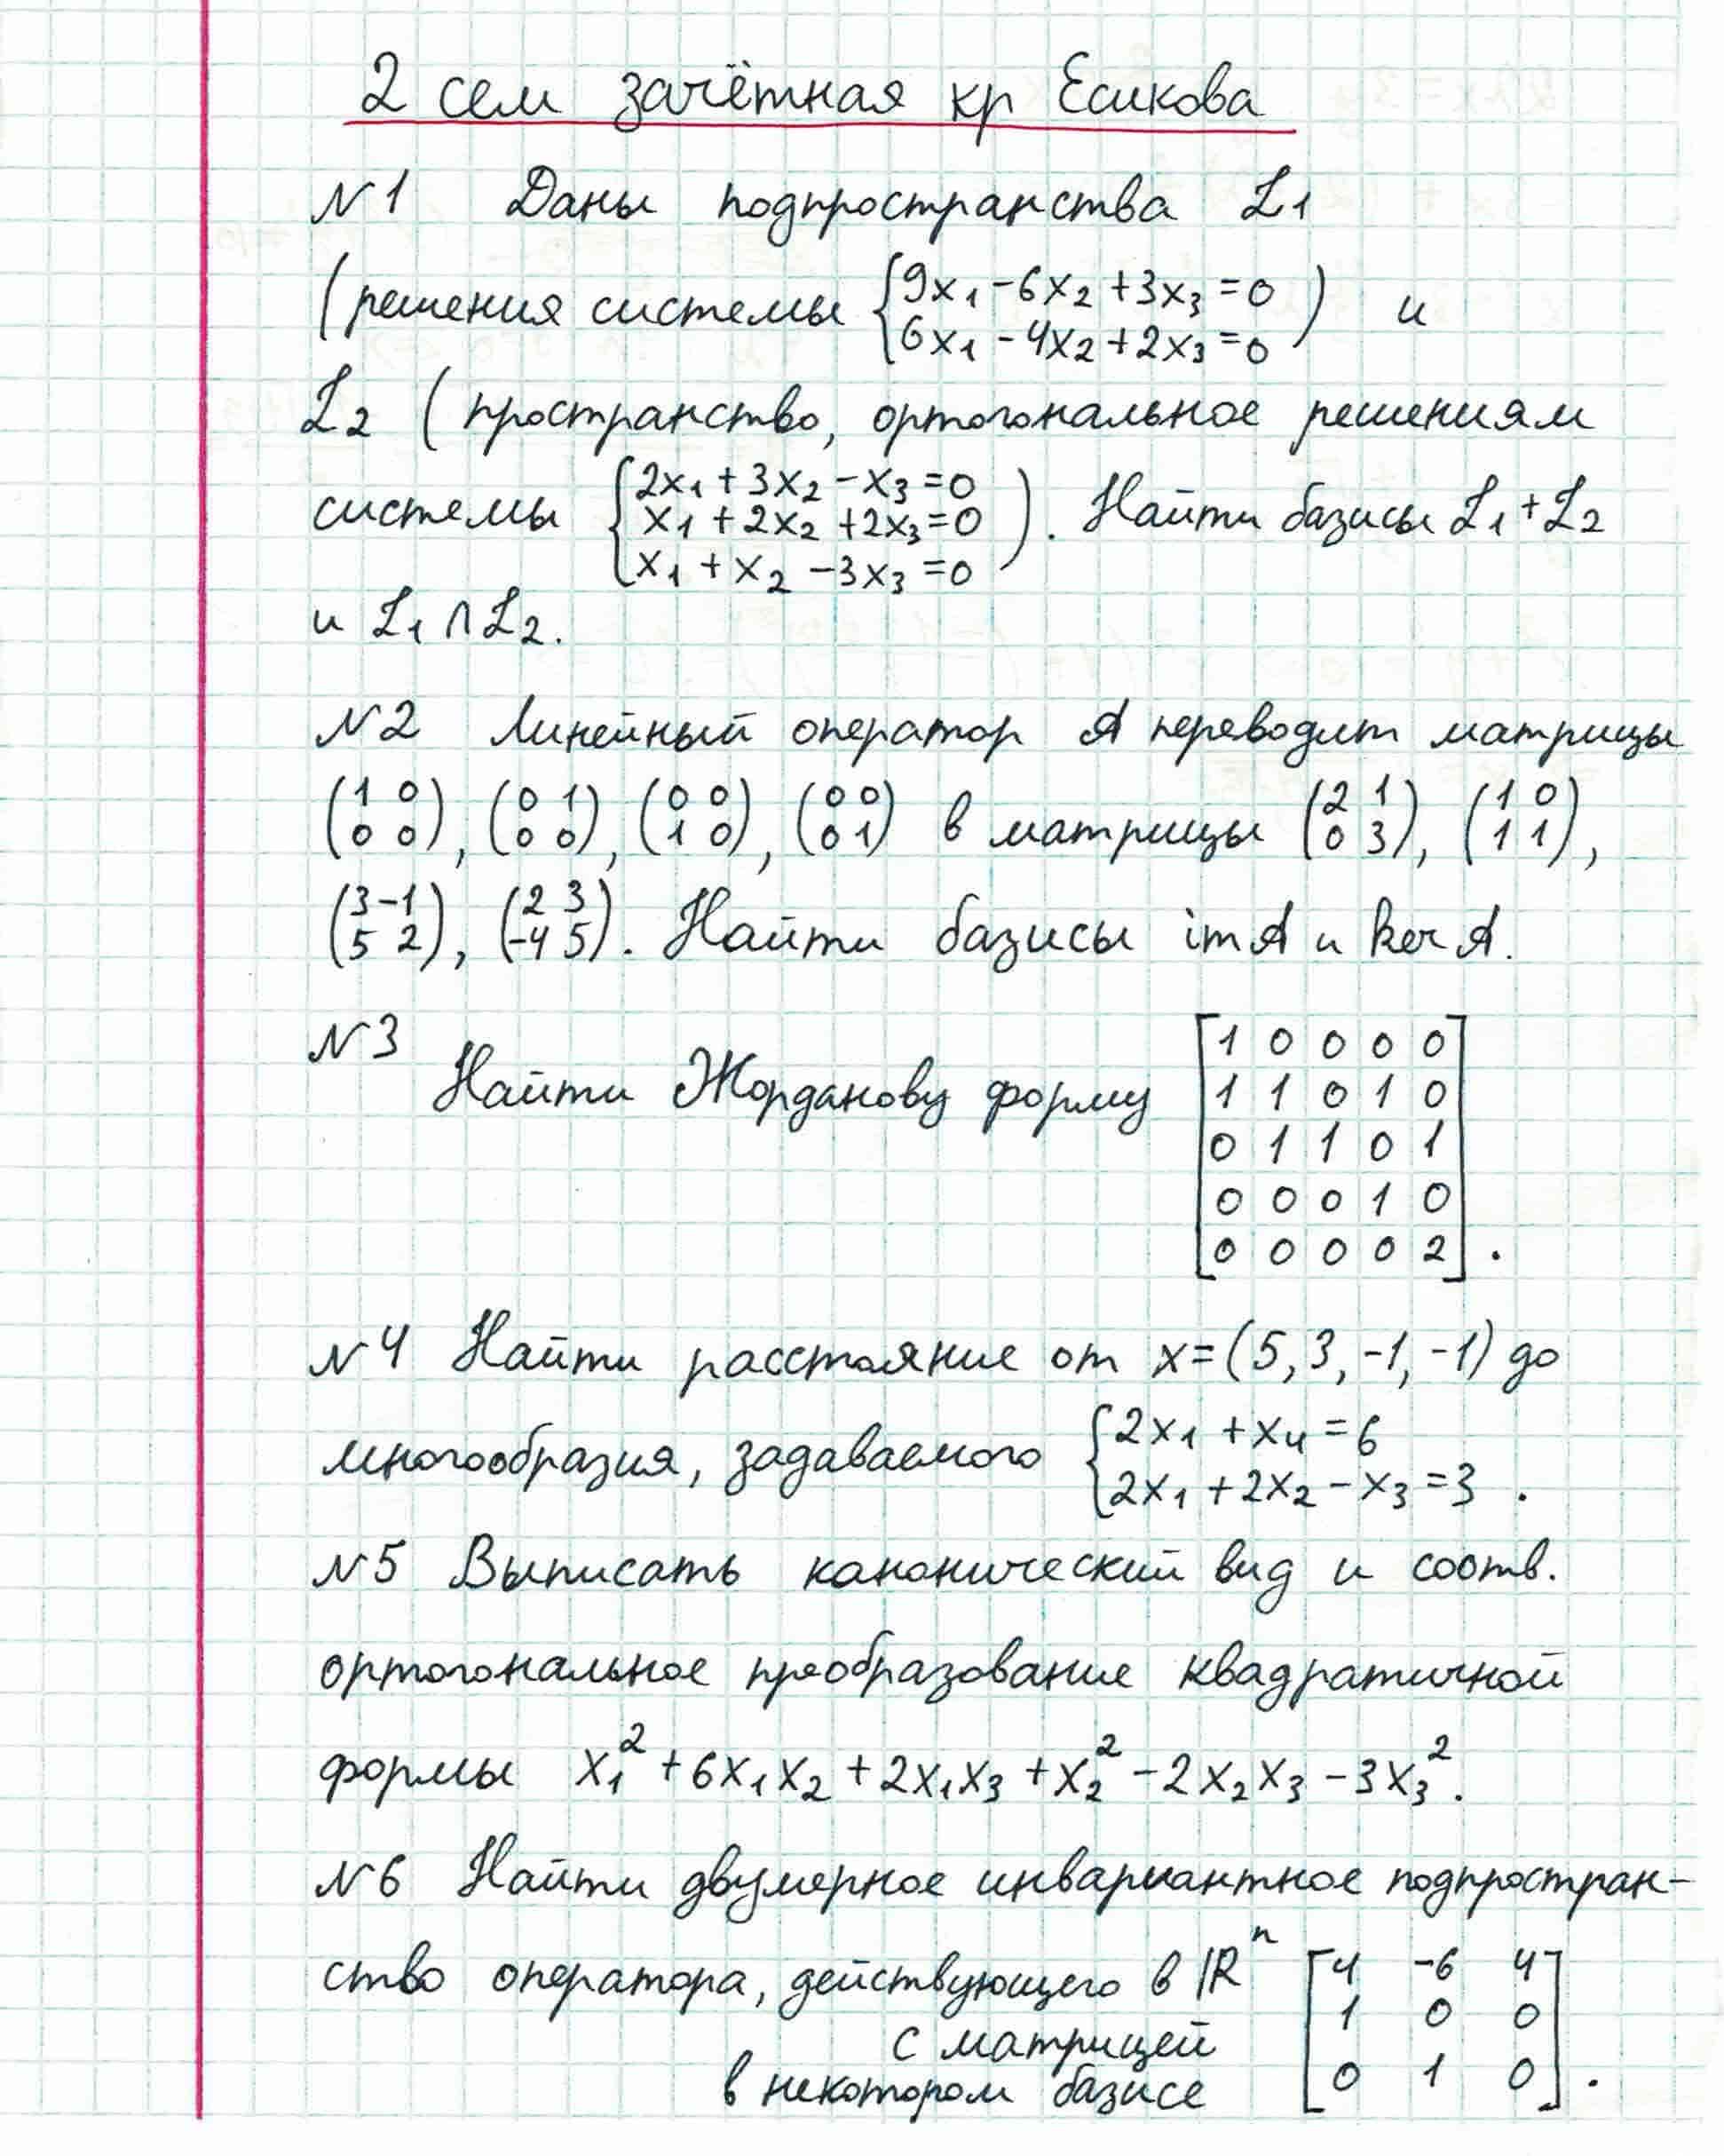 2 сем зачётная кр Есикова
N1 Даны подпространства L1
(решения системы {9x1 -6x2 +3x3 =0
6x1 -4x2 +2x3 =0) и
L2 (пространство, ортогональное решениям
системы {2x1 + 3x2 - x3 =0
x1 + 2x2 +2x3 =0
x1 + x2 -3x3 =0). Найти базисы L1 + L2
и L1 ∩ L2.
N2 Линейный оператор A переводит матрицы
(1 0
0 0), (0 1
0 0), (0 0
1 0), (0 0
0 1) в матрицы (2 1
0 3), (1 0
1 1),
(3 -1
5 2), (2 3
-4 5). Найти базисы im A и ker A.
N3
Найти Жорданову форму
[1 0 0 0 0
1 1 0 1 0
0 1 1 0 1
0 0 0 1 0
0 0 0 0 2].
N4 Найти расстояние от x=(5, 3, -1, -1) до
многообразия, задаваемого {2x1 + x4 = 6
2x1 + 2x2 - x3 = 3.
N5 Выписать канонический вид и соотв.
ортогональное преобразование квадратичной
формы x1² + 6x1x2 + 2x1x3 + x2² - 2x2x3 - 3x3².
N6 Найти двумерное инвариантное подпростран-
ство оператора, действующего в ℝⁿ
с матрицей
в некотором базисе
[4 -6 4
1 0 0
0 1 0].